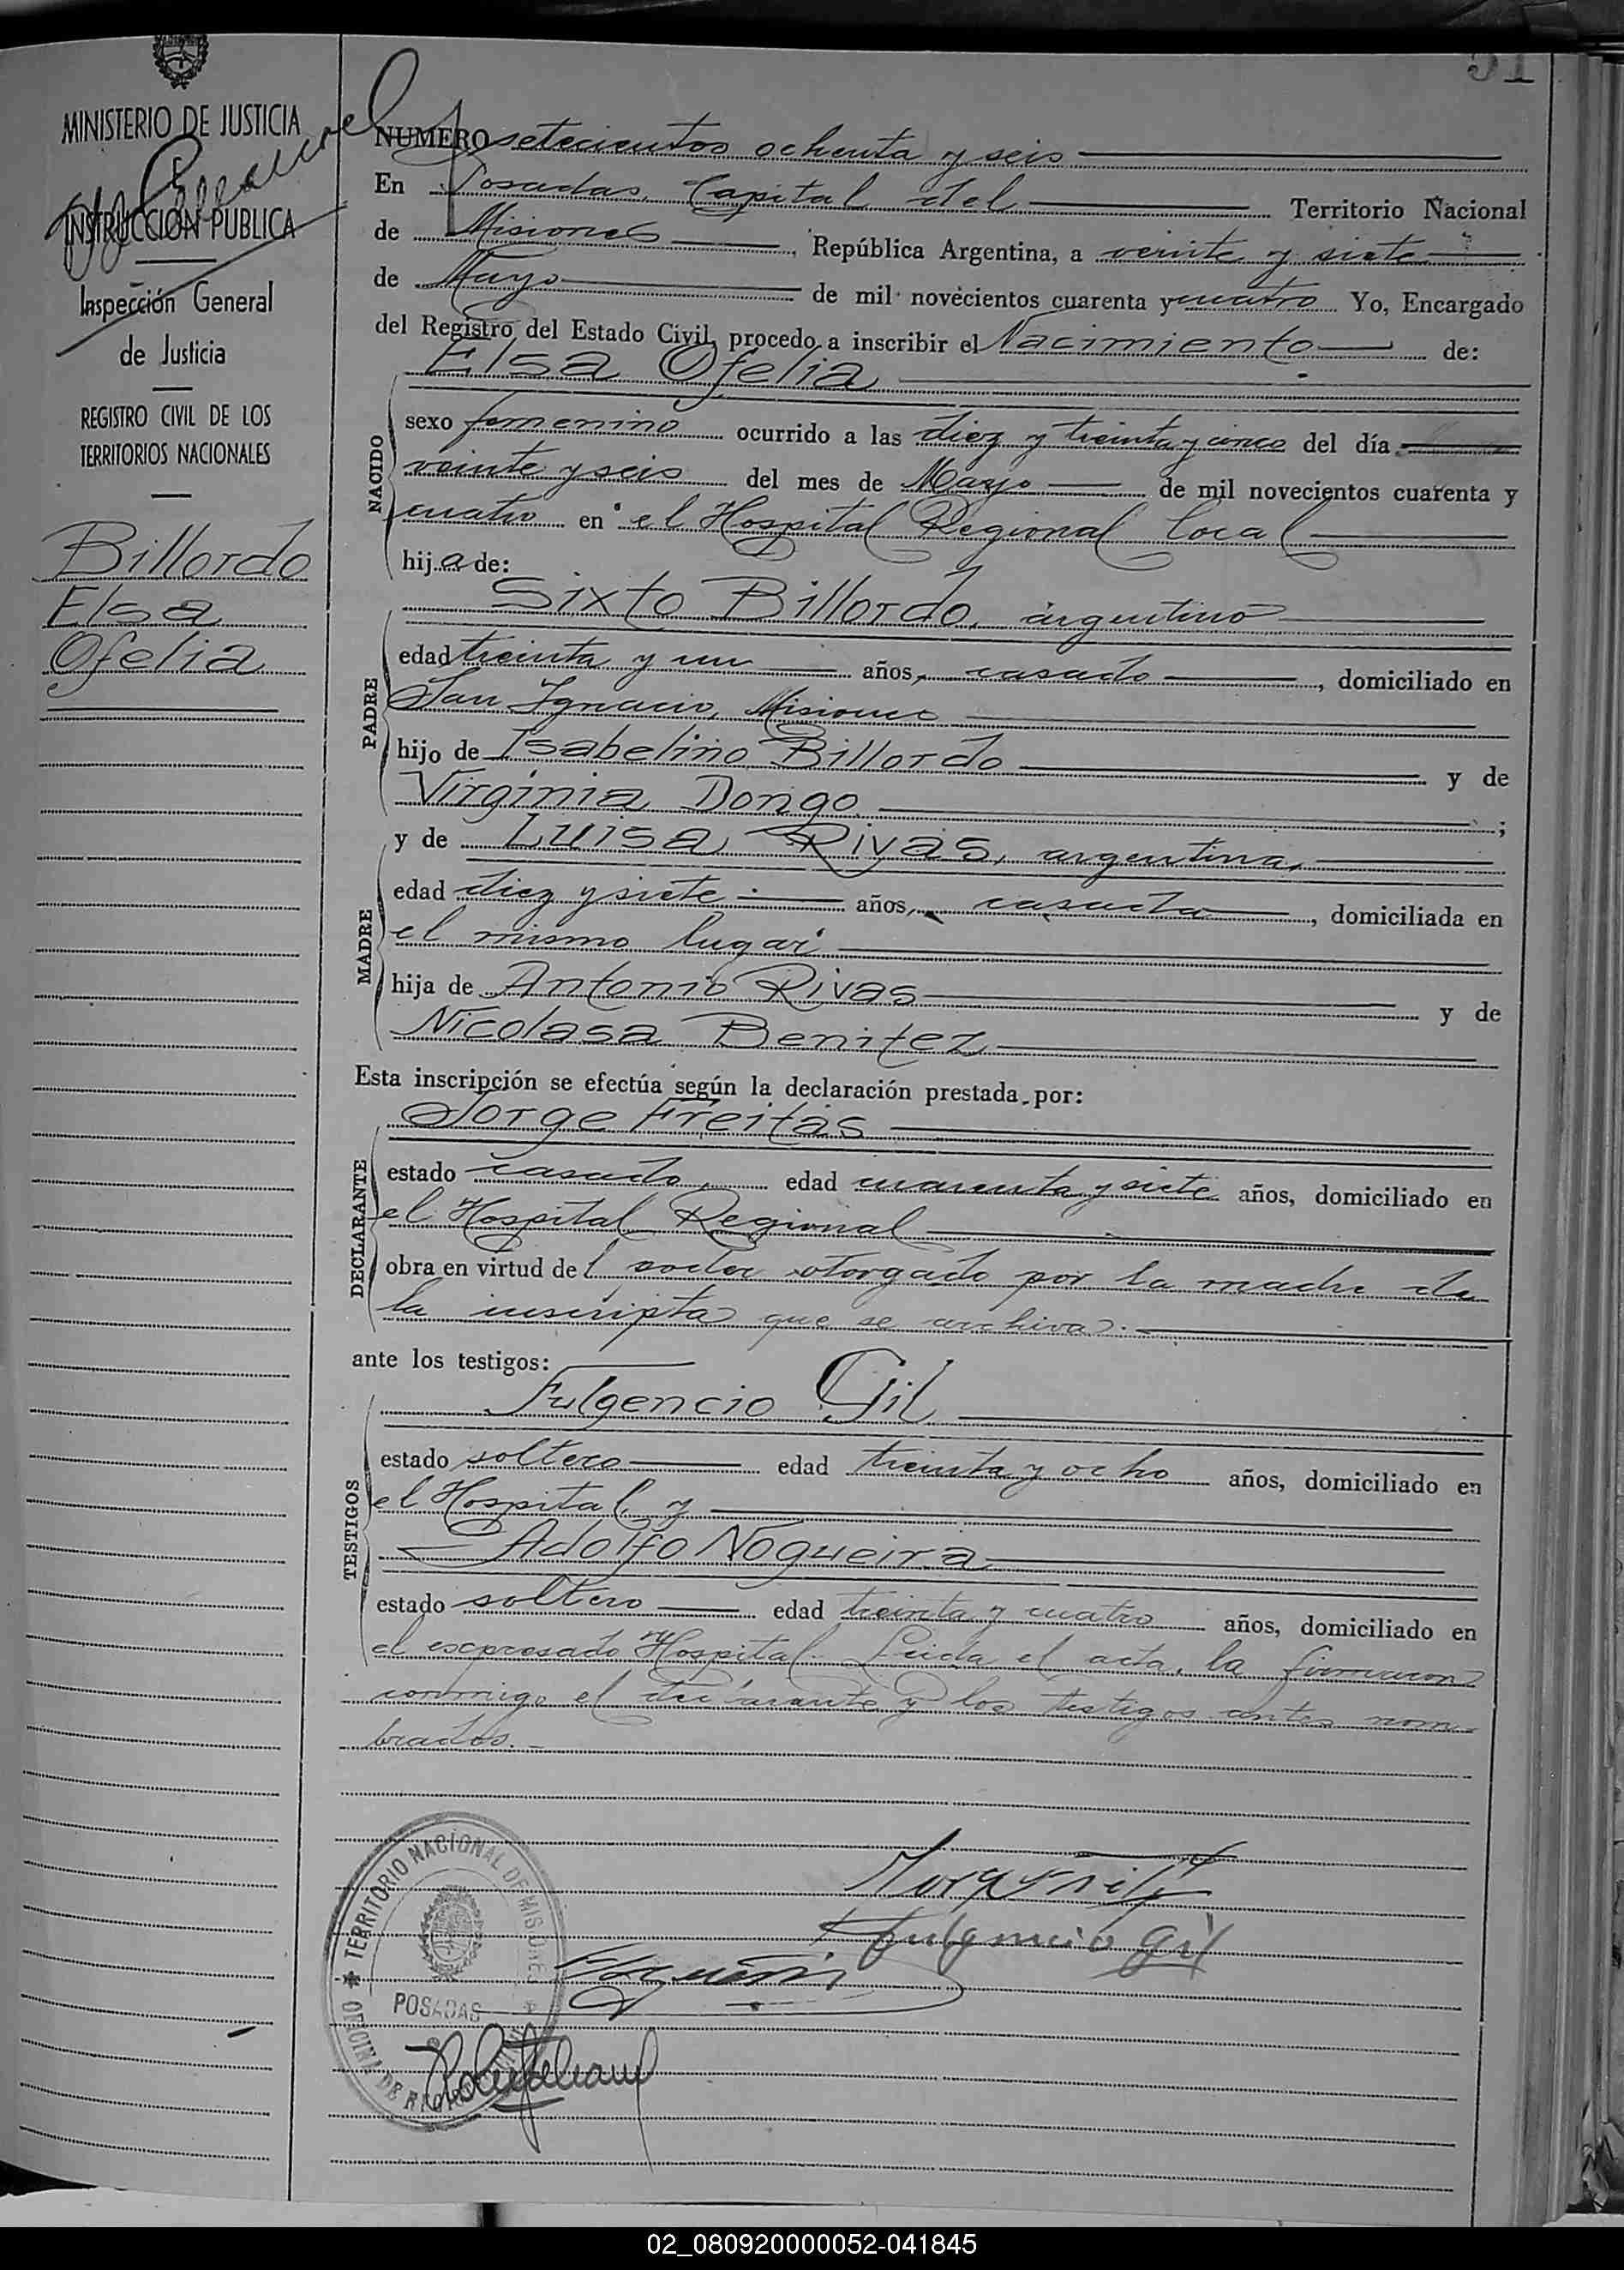 51
MINISTERIO DE JUSTICIA
INSTRUCCIÓN PUBLICA
Inspección General
de Justicia
REGISTRO CIVIL DE LOS
TERRITORIOS NACIONALES
Billordo
Elsa
Ofelia
NUMERO setecientos ochenta y seis
En Posadas, Capital del Territorio Nacional
de Misiones, República Argentina, a veinte y siete
de Mayo de mil novecientos cuarenta y cuatro Yo, Encargado
del Registro del Estado Civil, procedo a inscribir el Nacimiento de:
Elsa Ofelia
NACIDO
sexo femenino ocurrido a las diez y treinta y cinco del día
veinte y seis del mes de Mayo de mil novecientos cuarenta y
cuatro en el Hospital Regional local
hija de:
Sixto Billordo, argentino
PADRE
edad treinta y un años, casado, domiciliado en
San Ignacio, Misiones
hijo de Isabelino Billordo y de
Virginia Dongo;
y de Luisa Rivas, argentina,
MADRE
edad diez y siete años, casada, domiciliada en
el mismo lugar
hija de Antonio Rivas y de
Nicolasa Benitez
Esta inscripción se efectúa según la declaración prestada por:
Jorge Freitas
DECLARANTE
estado casado, edad cuarenta y siete años, domiciliado en
el Hospital Regional
obra en virtud del poder otorgado por la madre de
la inscripta que se archiva.
ante los testigos:
Fulgencio Gil
TESTIGOS
estado soltero edad treinta y ocho años, domiciliado en
el Hospital y
Adolfo Nogueira
estado soltero edad treinta y cuatro años, domiciliado en
el expresado Hospital. Leida el acta, la firmaron
conmigo el declarante y los testigos antes nom-
brados.
Jorge Freitas
Fulgencio Gil
TERRITORIO NACIONAL DE MISIONES
POSADAS
OFICINA DE REGISTRO CIVIL
02_080920000052-041845